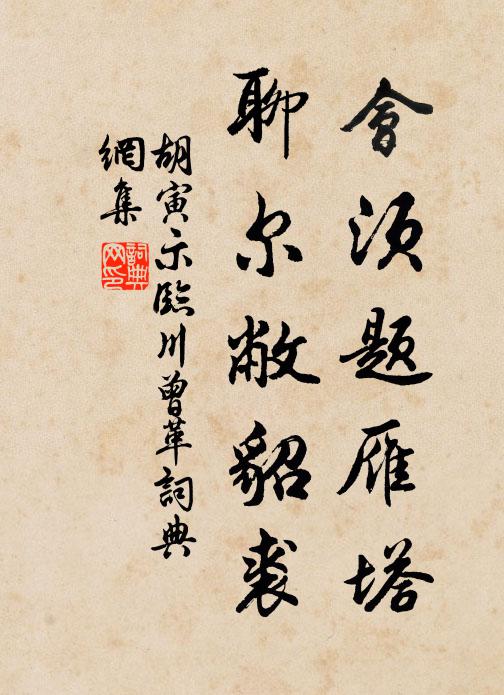 會須題雁塔
聊尔敝貂裘
胡寅示臨川曾革詞典
網集
詞典网印